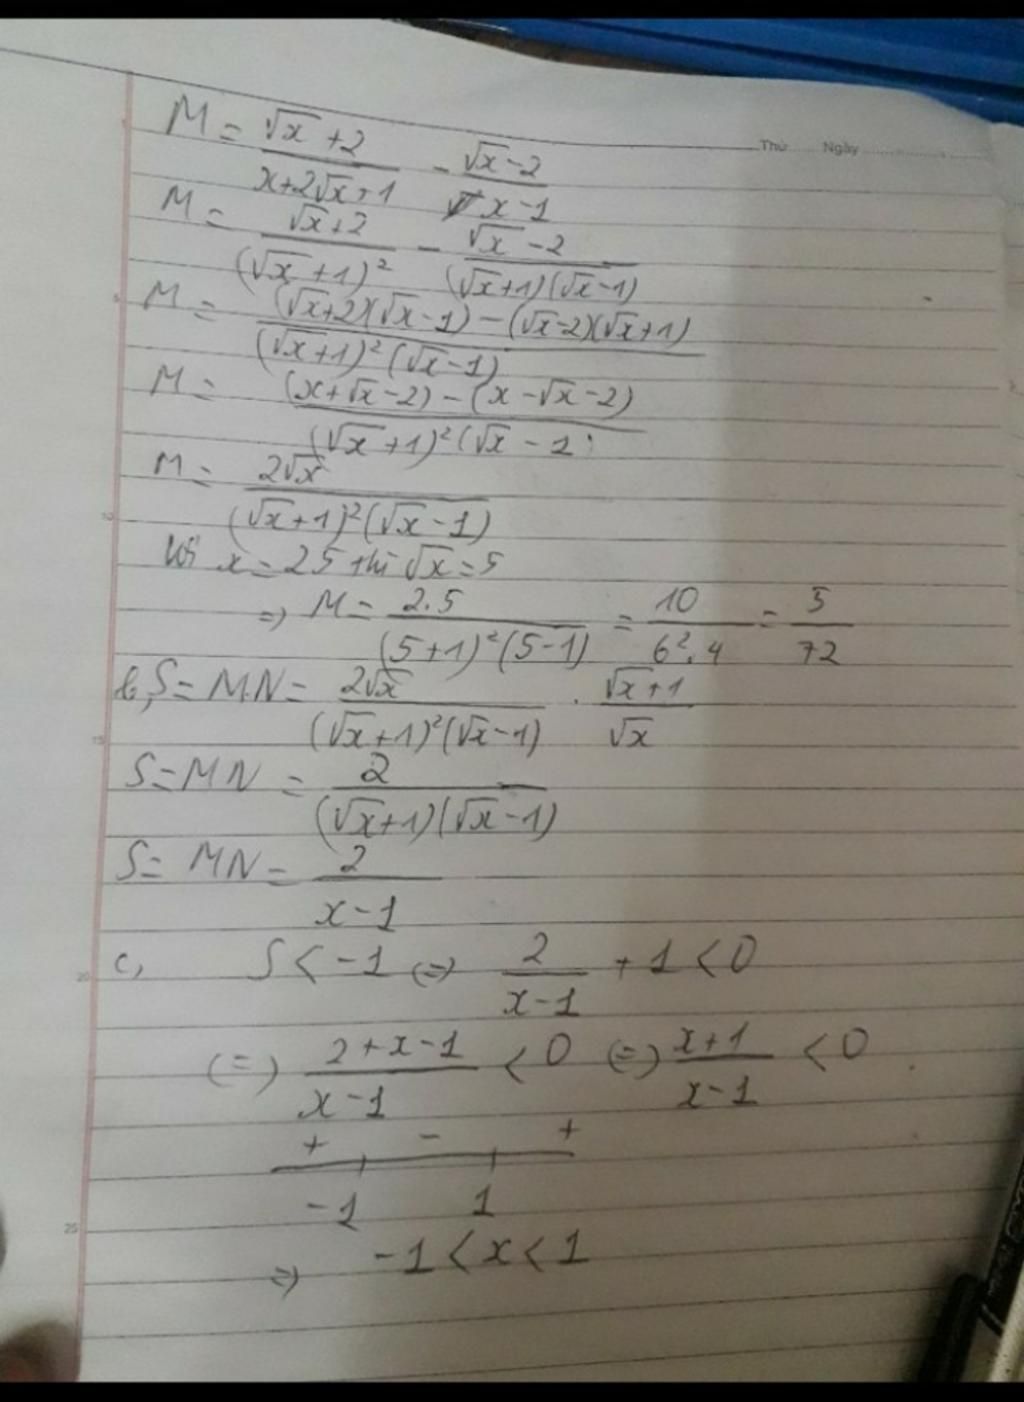 Thứ Ngày
M = (√x + 2)/(x+2√x+1) - (√x-2)/(x-1)
M = (√x+2)/((√x+1)²) - (√x-2)/((√x+1)(√x-1))
M = ((√x+2)(√x-1) - (√x-2)(√x+1))/((√x+1)²(√x-1))
M = ((x+√x-2) - (x-√x-2))/((√x+1)²(√x-1)
M = 2√x/((√x+1)²(√x-1))
Với x = 25 thì √x = 5
=> M = 2.5/((5+1)²(5-1)) = 10/(6².4) = 5/72
b, S = M.N = 2√x/((√x+1)²(√x-1)) . (√x+1)/√x
S = MN = 2/((√x+1)(√x-1))
S = MN = 2/(x-1)
c, S < -1 (=) 2/(x-1) + 1 < 0
(=) (2+x-1)/(x-1) < 0 (=) (x+1)/(x-1) < 0
+ - +
-1 1
=> -1 < x < 1
5
10
15
20
25